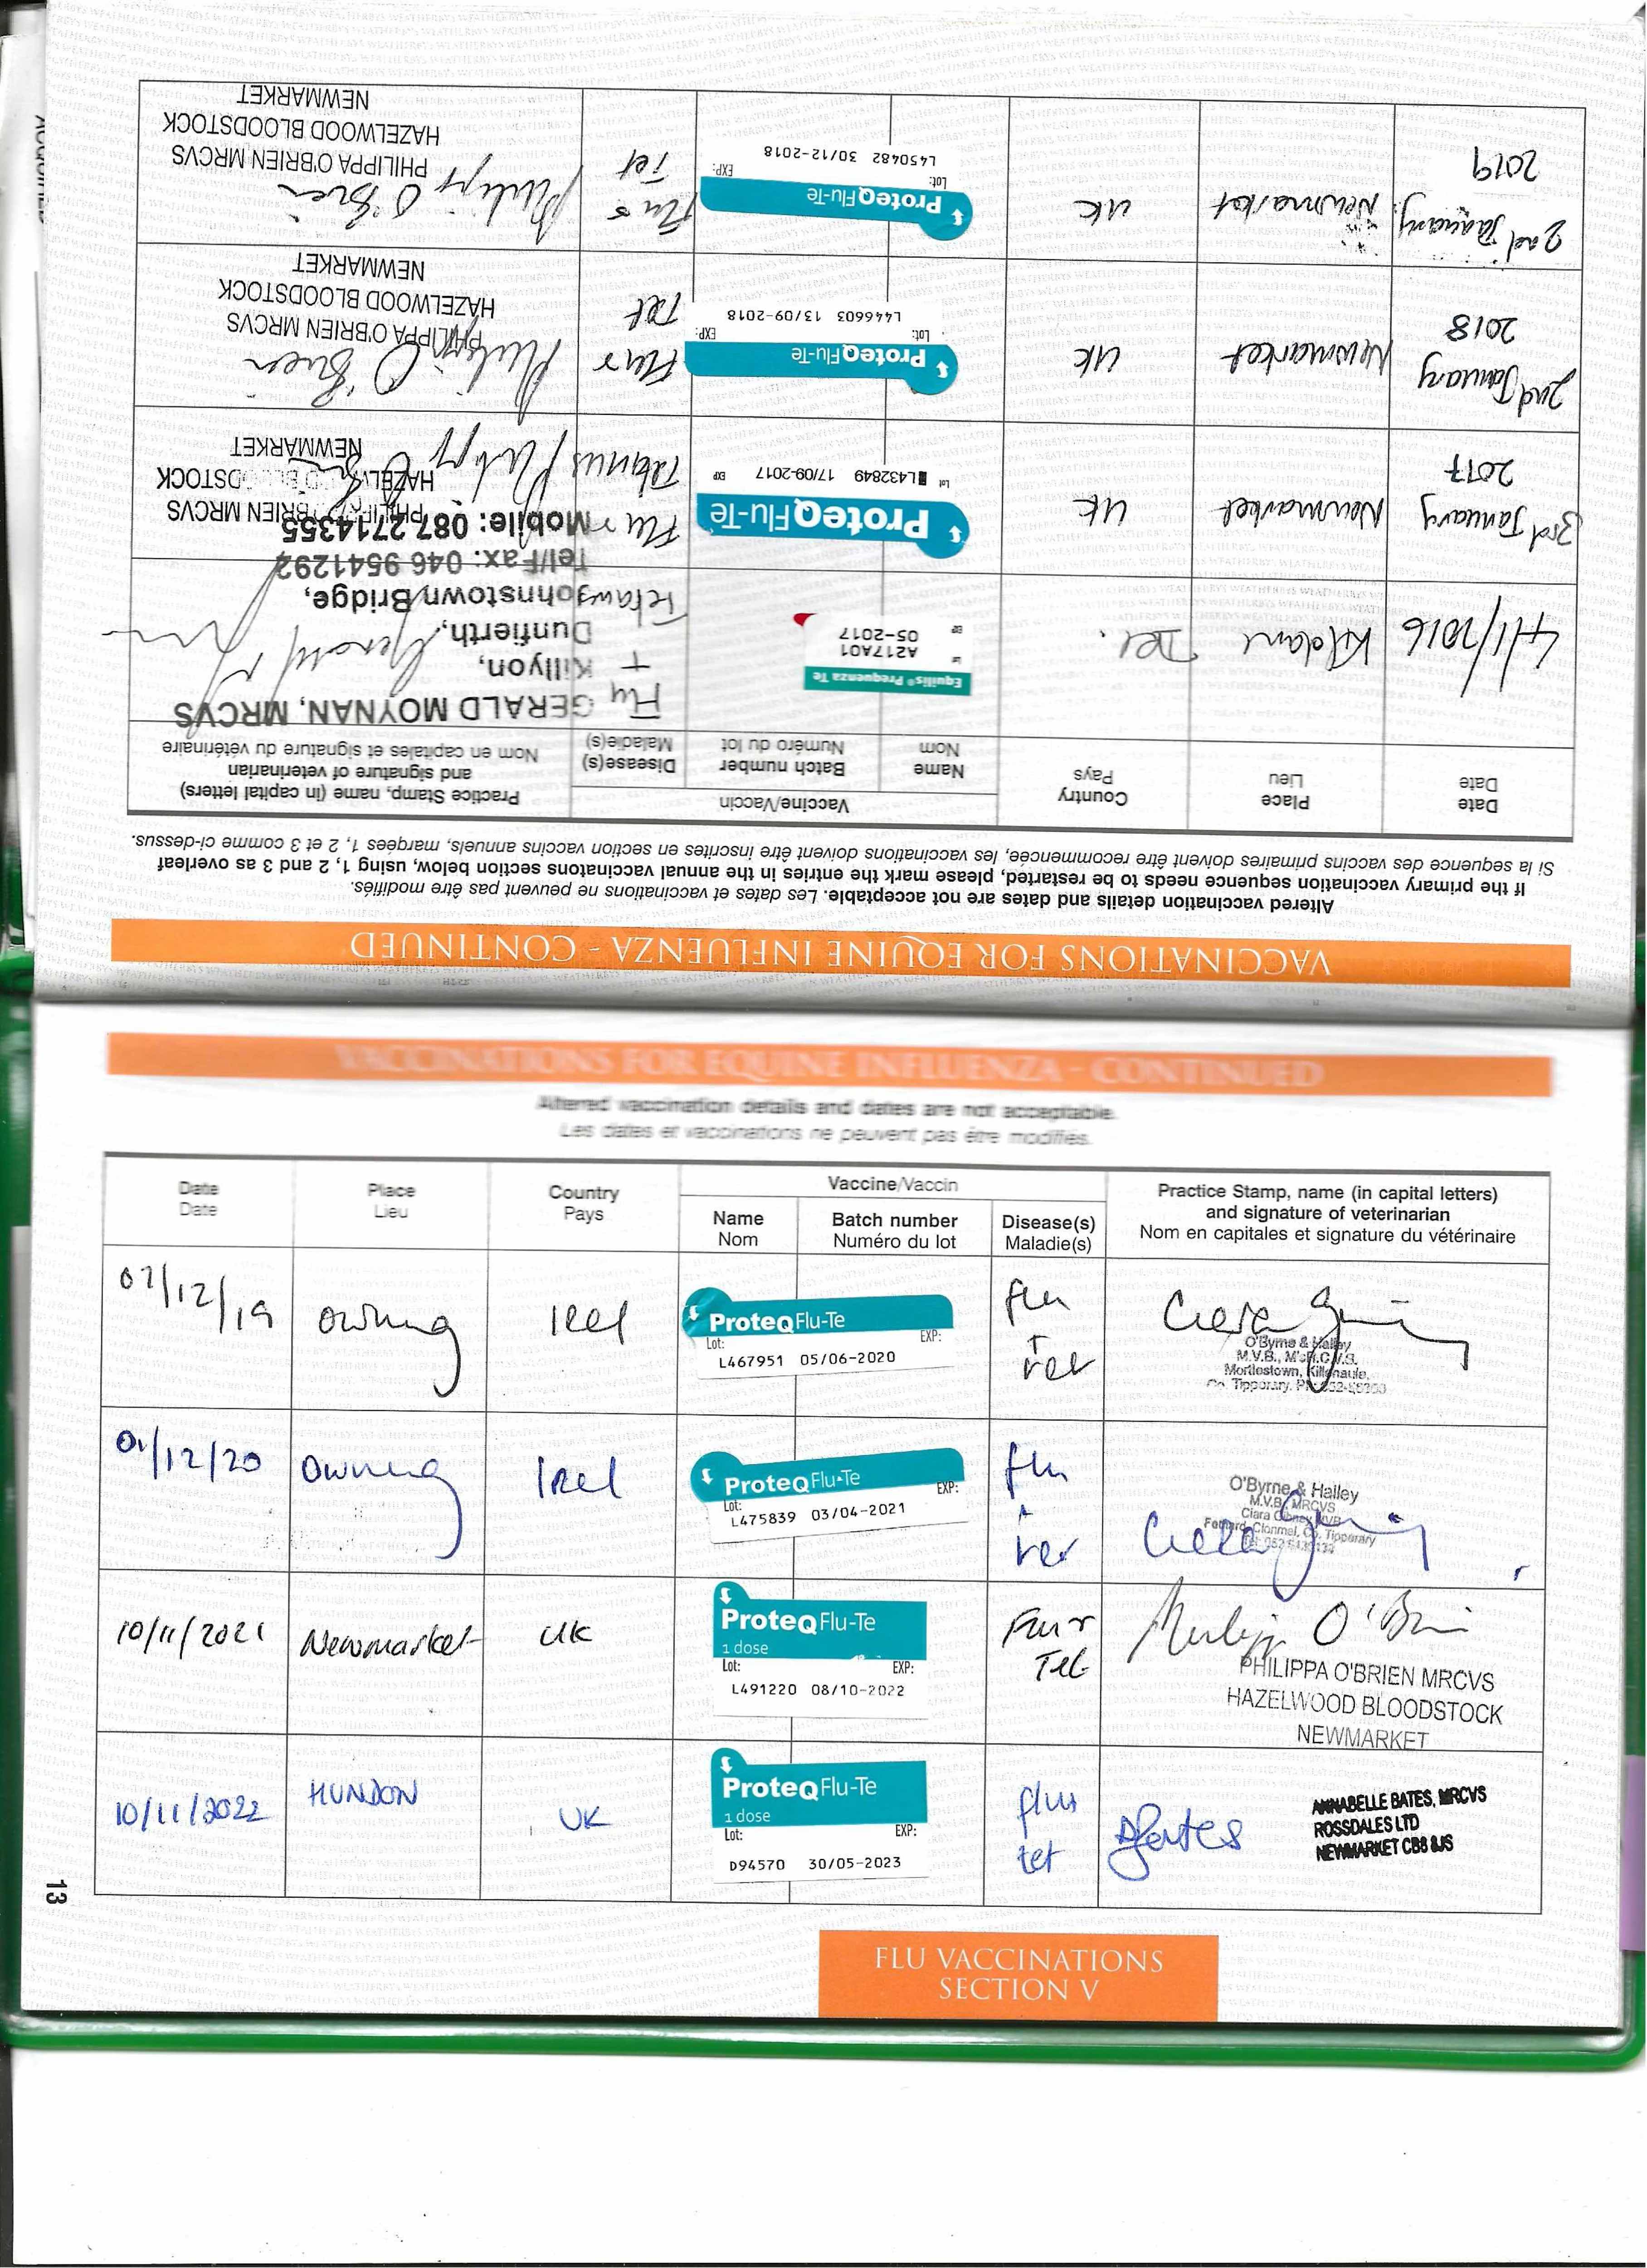 VACCINATIONS FOR EQUINE INFLUENZA - CONTINUED
Altered vaccination details and dates are not acceptable. Les dates et vaccinations ne peuvent pas être modifiés.
If the primary vaccination sequence needs to be restarted, please mark the entries in the annual vaccinatons section below, using 1, 2 and 3 as overleaf
Si la sequence des vaccins primaires doivent être recommencée, les vaccinations doivent être inscrites en section vaccins annuels, marqées 1, 2 et 3 comme ci-dessus.
Date
Date
Place
Lieu
Country
Pays
Vaccine/Vaccin
Name
Nom
Batch number
Numéro du lot
Disease(s)
Maladie(s)
Practice Stamp, name (in capital letters)
and signature of veterinarian
Nom en capitales et signature du vétérinaire
4/1/2016
Kildare
Irel.
Equilis® Prequenza Te
A217A01
05-2017
Flu
+
Tetanus
GERALD MOYNAN, MRCVS
Killyon,
Dunfierth,
Johnstown Bridge,
Tel/Fax: 046 9541292
Mobile: 087 2714355
3rd January
2017
Newmarket
UK
ProteqFlu-Te
Lot L432849 17/09-2017 EXP
Flu
Tetanus
PHILIPPA O'BRIEN MRCVS
HAZELWOOD BLOODSTOCK
NEWMARKET
2nd January
2018
Newmarket
UK
ProteqFlu-Te
Lot: EXP:
L446603 13/09-2018
Flu
Tet
Philippa O'Brien
PHILIPPA O'BRIEN MRCVS
HAZELWOOD BLOODSTOCK
NEWMARKET
2nd January
2019
Newmarket
UK
ProteqFlu-Te
Lot: EXP:
L450482 30/12-2018
Flu &
Tet
Philippa O'Brien
PHILIPPA O'BRIEN MRCVS
HAZELWOOD BLOODSTOCK
NEWMARKET
VACCINATIONS FOR EQUINE INFLUENZA - CONTINUED
Altered vaccination details and dates are not acceptable.
Les dates et vaccinations ne peuvent pas être modifiés.
Date
Date
Place
Lieu
Country
Pays
Vaccine/Vaccin
Name
Nom
Batch number
Numéro du lot
Disease(s)
Maladie(s)
Practice Stamp, name (in capital letters)
and signature of veterinarian
Nom en capitales et signature du vétérinaire
/12/19
Owning
Irel
ProteqFlu-Te
Lot: EXP:
L467951 05/06-2020
flu
+
tet
O'Byrne & Halley
Mortlestown, Killenaule,
Co. Tipperary.
01/12/20
Owning
Irel
ProteqFlu-Te
Lot: EXP:
L475839 03/04-2021
flu
+
tet
O'Byrne & Halley
M.V.B. MRCVS
Fethard, Clonmel, Co. Tipperary
10/11/2021
Newmarket
UK
ProteqFlu-Te
1 dose
Lot: EXP:
L491220 08/10-2022
Flu
Tet
Philippa O'Brien
PHILIPPA O'BRIEN MRCVS
HAZELWOOD BLOODSTOCK
NEWMARKET
10/11/2022
HUNDON
UK
ProteqFlu-Te
1 dose
Lot: EXP:
D94570 30/05-2023
flu
tet
ABates
ANNABELLE BATES, MRCVS
ROSSDALES LTD
NEWMARKET CB8 8JS
13
FLU VACCINATIONS
SECTION V